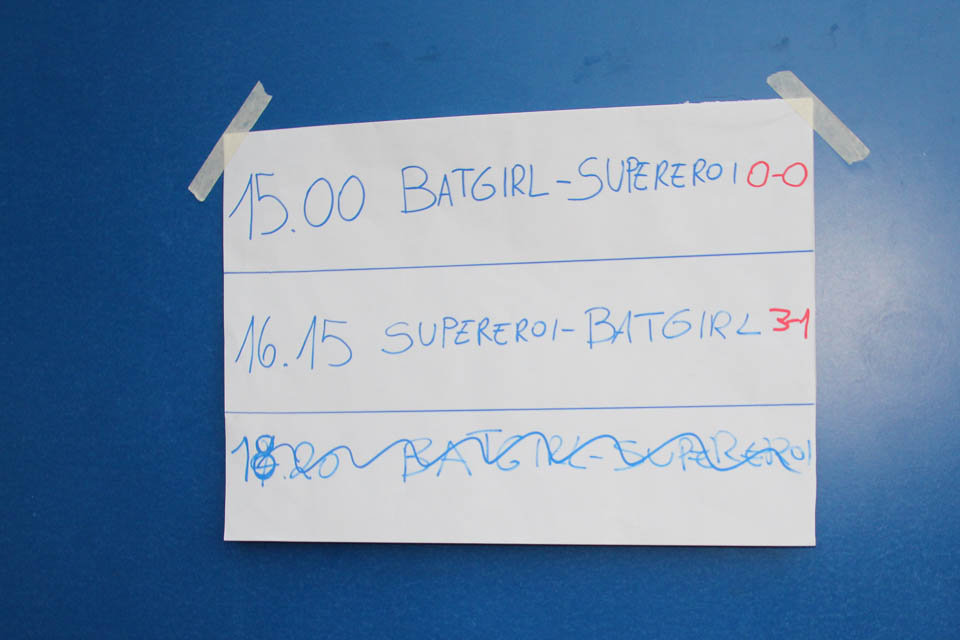 15.00 BATGIRL-SUPEREROI 0-0
16.15 SUPEREROI-BATGIRL 3-1
18.20 BATGIRL-SUPEREROI